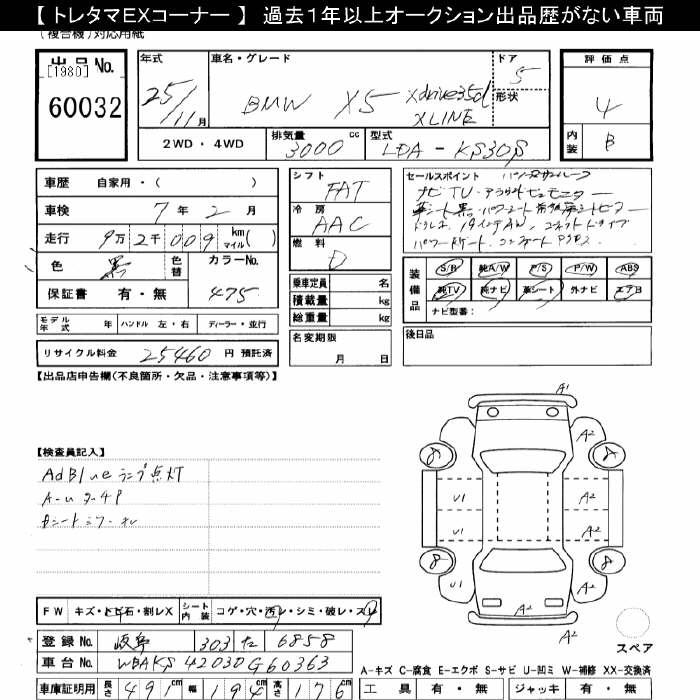 【 トレタマEXコーナー 】 過去1年以上オークション出品歴がない車両
(複合機)対応用紙
出品No.
[1980]
60032
年式
25/11月
車名・グレード
BMW X5 Xdrive35d
XLINE
ドア
5
形状
評価点
4
内装
B
2WD・4WD
排気量
3000
cc
型式
LDA - KS30S
車歴 自家用・( )
車検 7年2月
走行 9万2千009 km マイル( )
色 黒 色替 カラーNo.
保証書 有・無 475
モデル年式 年 ハンドル 左・右 ディーラー・並行
リサイクル料金 25460 円 預託済
シフト
FAT
冷房
AAC
燃料
D
乗車定員 名
積載量 kg
総重量 kg
名変期限
月 日
セールスポイント パノラマサンルーフ
ナビTV・アラウンドビューモニター
パワーゲート コンフォートアクセス
装備品
S/R 純A/W P/S P/W ABS
純TV 純ナビ 革シート 外ナビ エアB
ナビ型番:
後日品
【出品店申告欄(不良箇所・欠品・注意事項等)】
【検査員記入】
AdBlueランプ点灯
FW キズ・トビ石・割レX シート内装 コゲ・穴・汚レ・シミ・破レ・スレ
登録No. 岐阜 303 た 6858
車台No. WBAKS42030G60363
車庫証明用 長さ 491cm 幅 194cm 高さ 176cm
A1
A2
A2
8
8
U1
A2
U1
A2
8
8
U1
A2
A2
A2
スペア
A-キズ C-腐食 E-エクボ S-サビ U-凹ミ W-補修 XX-交換済
工具 有・無 ジャッキ 有・無